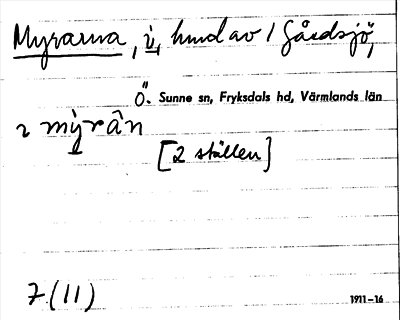 Myrarna, i, hmd av / Gårdsjö,
Ö. Sunne sn, Fryksdals hd, Värmlands län
2 mỳrân
[2 ställen]
7 (11)
1911-16